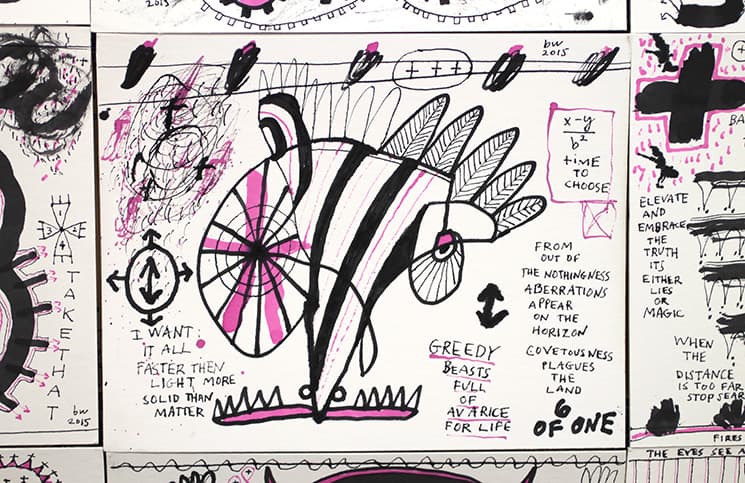 2015
bw
2015
+ + +
x-y
b²
TIME
TO
CHOOSE
I WANT:
IT ALL
FASTER THEN
LIGHT MORE
SOLID THAN
MATTER
GREEDY
BEASTS
FULL
OF
AVARICE
FOR LIFE
FROM
OUT OF
THE NOTHINGNESS
ABERRATIONS
APPEAR
ON THE
HORIZON
COVETOUSNESS
PLAGUES
THE
LAND
6
OF ONE
1
3 2
4
TAKE THAT
bw
2015
BA
ELEVATE
AND
EMBRACE
THE
TRUTH
ITS
EITHER
LIES
OR
MAGIC
WHEN
THE
DISTANCE
IS TOO FAR
STOP SEAR
FIRES
THE EYES SEE